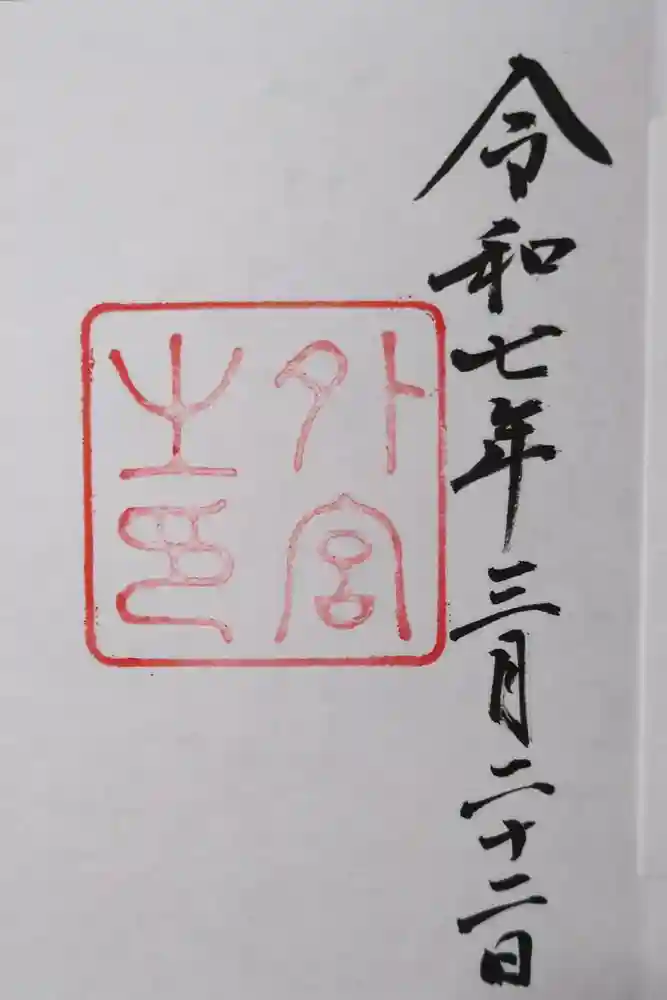 令和七年三月二十二日
外宮之印